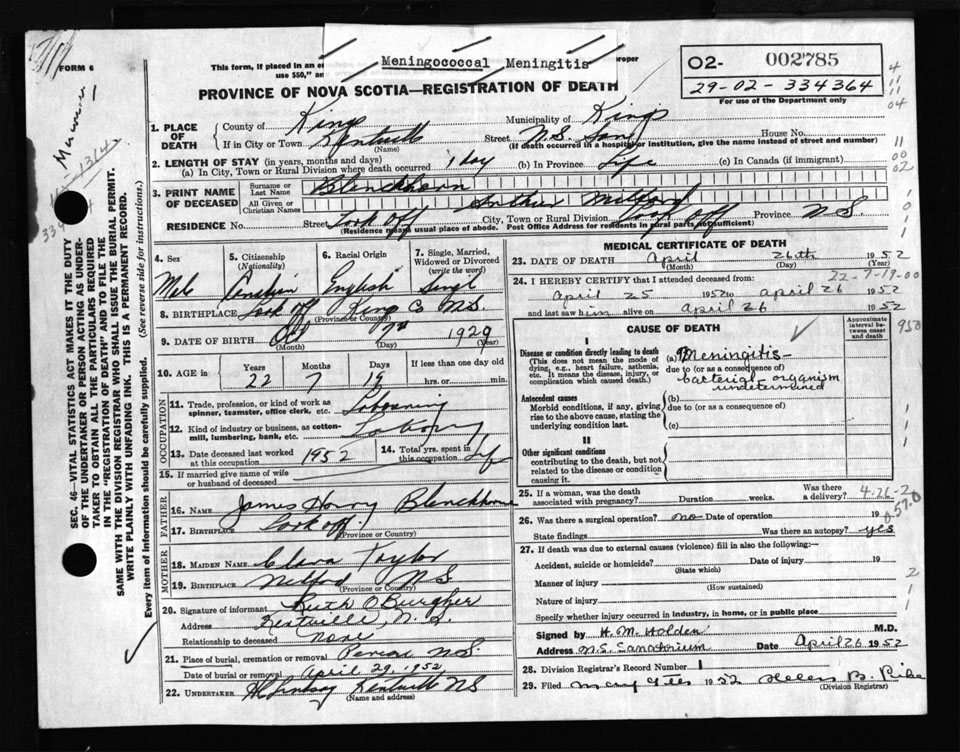 FORM 6
This form, if placed in an en
use $50," an
Meningococcal Meningitis
roper
02- 002785
29-02-334364
For use of the Department only
PROVINCE OF NOVA SCOTIA—REGISTRATION OF DEATH
1. PLACE OF DEATH
County of Kings
Municipality of Kings
If in City or Town Kentville
(Name)
Street N.S. San House No.
(If death occurred in a hospital or institution, give the name instead of street and number)
2. LENGTH OF STAY (in years, months and days)
(a) In City, Town or Rural Division where death occurred 1 day (b) In Province Life (c) In Canada (if immigrant)
3. PRINT NAME OF DECEASED
Surname or Last Name Blenckhorn
All Given or Christian Names Arthur Milford
RESIDENCE No. Street Look Off City, Town or Rural Division Look Off Province N.S.
(Residence means usual place of abode. Post Office Address for residents in rural parts not sufficient)
4. Sex
5. Citizenship (Nationality)
6. Racial Origin
7. Single, Married, Widowed or Divorced (write the word)
English
8. BIRTHPLACE Look Off Kings Co N.S.
(Province or Country)
9. DATE OF BIRTH Oct 7th 1929
(Month) (Day) (Year)
10. AGE in
Years Months Days If less than one day
22 7 19 hrs. or min.
OCCUPATION
11. Trade, profession, or kind of work as spinner, teamster, office clerk, etc.
12. Kind of industry or business, as cotton-mill, lumbering, bank, etc.
13. Date deceased last worked at this occupation 1952
14. Total yrs. spent in this occupation Life
15. If married give name of wife or husband of deceased
FATHER
16. Name James Harry Blenckhorne
17. Birthplace Look off.
(Province or Country)
MOTHER
18. MAIDEN NAME Clara Taylor
19. BIRTHPLACE N.S.
(Province or Country)
20. Signature of informant Ruth O Burgher
Address Kentville, N.S.
Relationship to deceased None
21. Place of burial, cremation or removal N.S.
Date of burial or removal April 29, 1952
22. UNDERTAKER Kentville NS
(Name and address)
MEDICAL CERTIFICATE OF DEATH
23. DATE OF DEATH April 26th 1952
(Month) (Day) (Year)
22-7-19-00
24. I HEREBY CERTIFY that I attended deceased from:
April 25 1952 to April 26 1952
and last saw him alive on April 26 1952
CAUSE OF DEATH
Approximate interval between onset and death
I
Disease or condition directly leading to death
(This does not mean the mode of dying, e.g., heart failure, asthenia, etc. It means the disease, injury, or complication which caused death.)
(a) Meningitis—
due to (or as a consequence of)
bacterial organism
undetermined
Antecedent causes
Morbid conditions, if any, giving rise to the above cause, stating the underlying condition last.
(b)
due to (or as a consequence of)
(c)
II
Other significant conditions
contributing to the death, but not related to the disease or condition causing it.
25. If a woman, was the death associated with pregnancy? Duration weeks. Was there a delivery? 4-26-2
26. Was there a surgical operation? no Date of operation 19
State findings Was there an autopsy? yes
27. If death was due to external causes (violence) fill in also the following:-
Accident, suicide or homicide? Date of injury 19
(State which)
Manner of injury
(How sustained)
Nature of injury
Specify whether injury occurred in industry, in home, or in public place
Signed by H. M. Holden M.D.
Address N.S. Sanatorium Date April 26 1952
28. Division Registrar's Record Number 1
29. Filed 1952 Helen B.
(Division Registrar)
SEC. 46-VITAL STATISTICS ACT MAKES IT THE DUTY
OF THE UNDERTAKER OR PERSON ACTING AS UNDER-
TAKER TO OBTAIN ALL THE PARTICULARS REQUIRED
IN THE "REGISTRATION OF DEATH" AND TO FILE THE
SAME WITH THE DIVISION REGISTRAR WHO SHALL ISSUE THE BURIAL PERMIT.
WRITE PLAINLY WITH UNFADING INK. THIS IS A PERMANENT RECORD.
Every item of information should be carefully supplied. (See reverse side for instructions.)